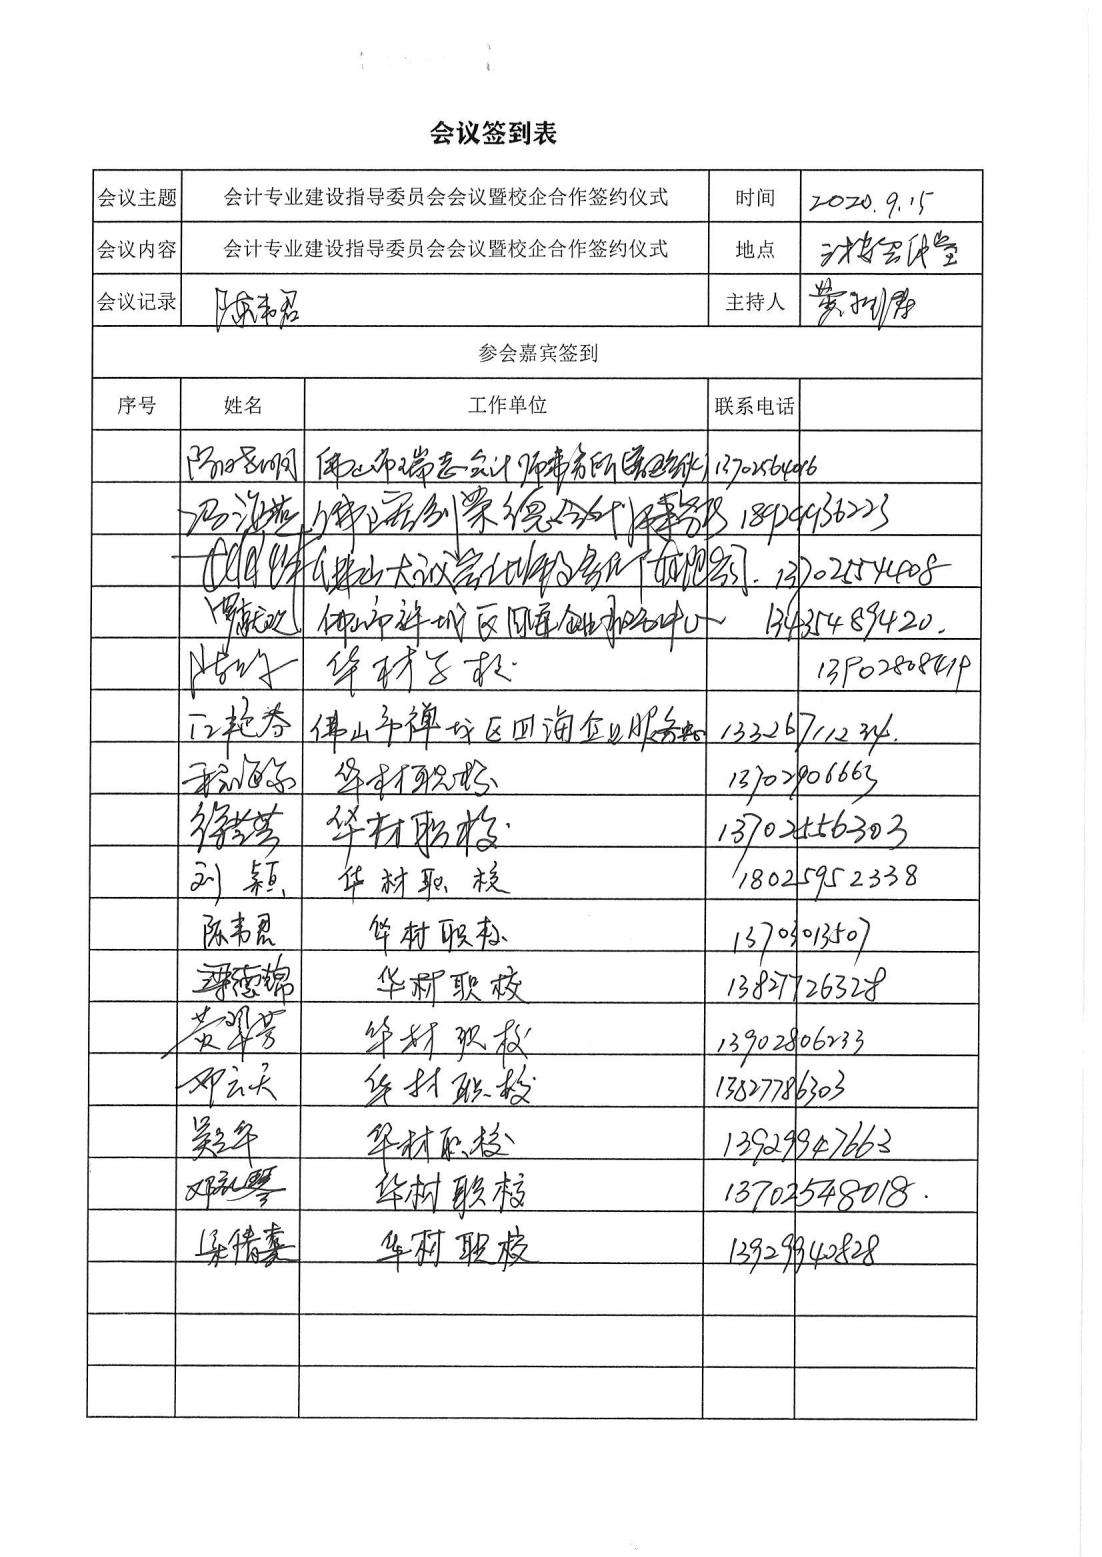 会议签到表
会议主题 会计专业建设指导委员会会议暨校企合作签约仪式 时间 2020.9.15
会议内容 会计专业建设指导委员会会议暨校企合作签约仪式 地点
会议记录 陈韦君 主持人
参会嘉宾签到
序号 姓名 工作单位 联系电话
佛山市瑞志会计师事务所 13702564016
冯海燕 18924436223
13702554408
佛山市禅城区四海企业服务中心 13435489420.
华材学校 13902808419
江艳芬 佛山市禅城区四海企业服务中心 13326711234.
华材职校 13702906663
华材职校 13702556303
刘颖 华材职校 18025952338
陈韦君 华材职校 13703013507
梁德锦 华材职校 13827726328
黄翠芳 华材职校 13902806233
邓云天 华材职校 13527786303
华材职校 13929947663
华材职校 13702548018.
梁倩 华材职校 13929940828